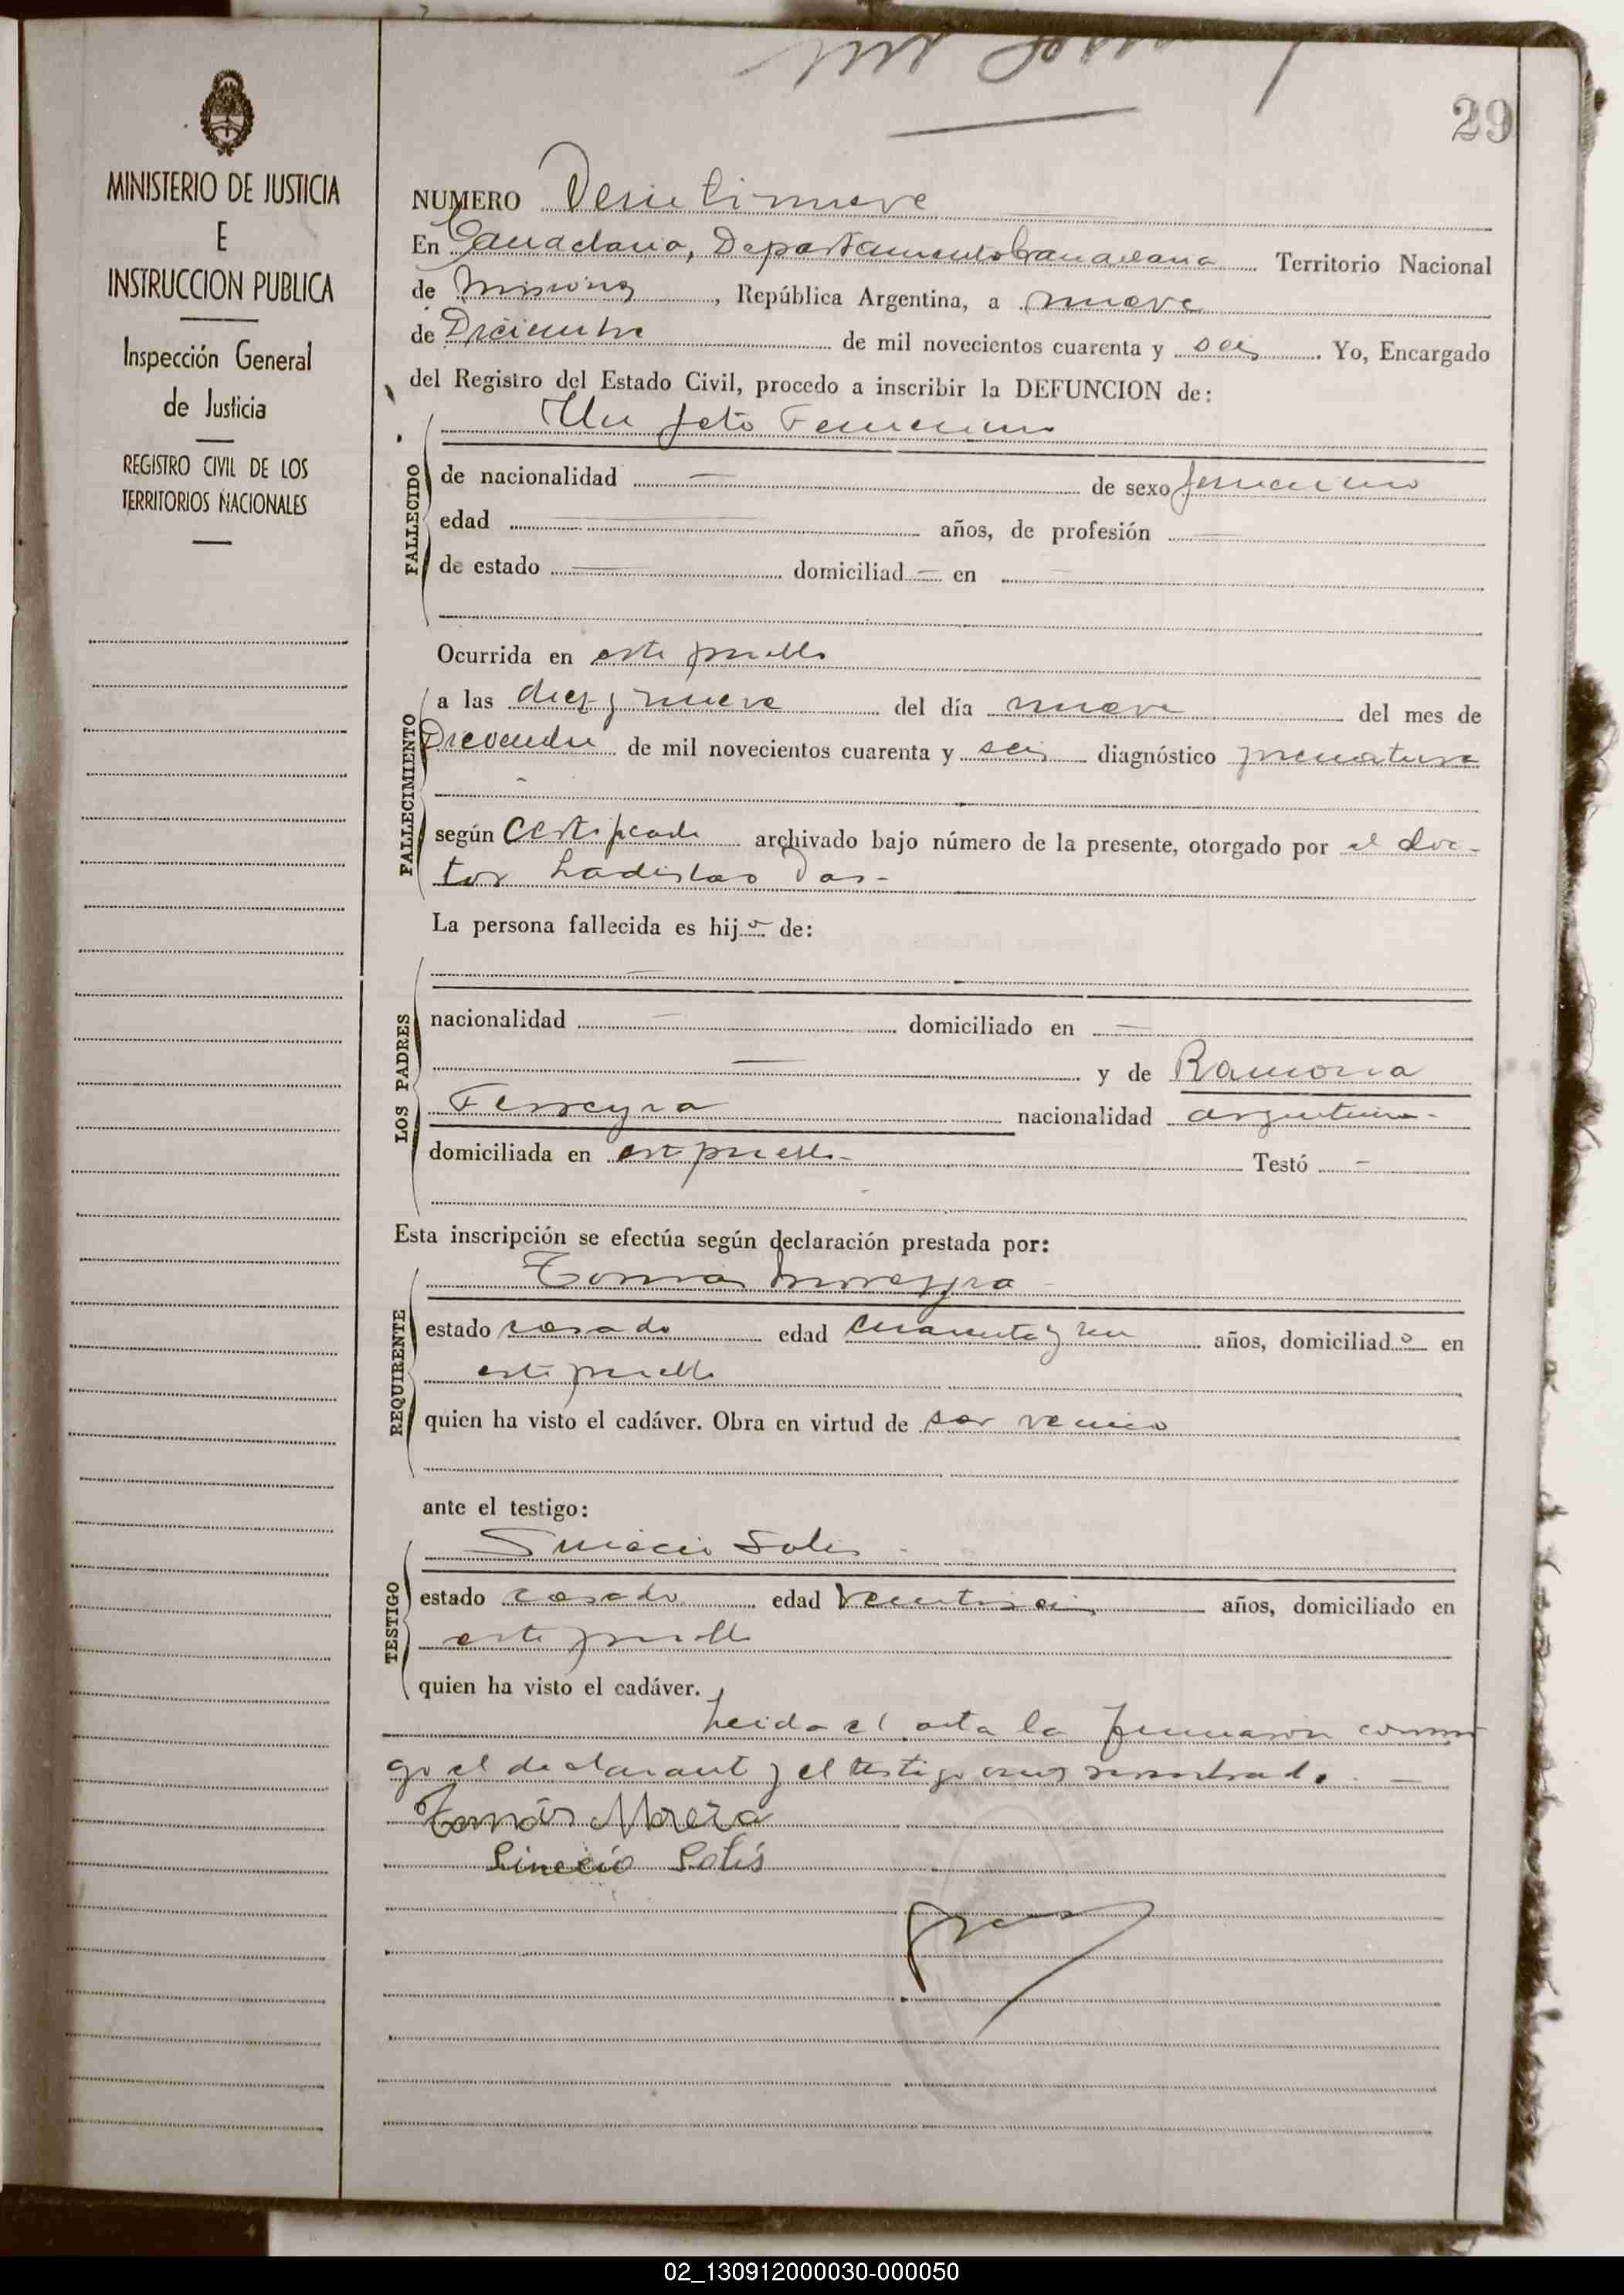 29
MINISTERIO DE JUSTICIA
E
INSTRUCCION PUBLICA
Inspección General
de Justicia
REGISTRO CIVIL DE LOS
TERRITORIOS NACIONALES
NUMERO
En Candelaria, Departamento Candelaria Territorio Nacional
de Misiones, República Argentina, a nueve
de Diciembre de mil novecientos cuarenta y seis. Yo, Encargado
del Registro del Estado Civil, procedo a inscribir la DEFUNCION de:
Un feto Femenino
FALLECIDO
de nacionalidad — de sexo femenino
edad — años, de profesión —
de estado — domiciliad — en —
Ocurrida en este pueblo
FALLECIMIENTO
a las diez y nueve del día nueve del mes de
Diciembre de mil novecientos cuarenta y seis diagnóstico prematura
según Certificado archivado bajo número de la presente, otorgado por el doc-
tor Ladislao
La persona fallecida es hija de:
—
LOS PADRES
nacionalidad — domiciliado en —
— y de Ramona
Ferreyra nacionalidad argentina-
domiciliada en este pueblo- Testó —
Esta inscripción se efectúa según declaración prestada por:
Tomas
REQUIRENTE
estado casado edad cuarenta y un años, domiciliado en
este pueblo
quien ha visto el cadáver. Obra en virtud de ser vecino
ante el testigo:
Solis
TESTIGO
estado casado edad Veintiseis años, domiciliado en
este pueblo
quien ha visto el cadáver.
Leida el acta la firmaron conmi
go el declarante y el testigo
Tomás Moreira
Sinecio Solís
02_130912000030-000050